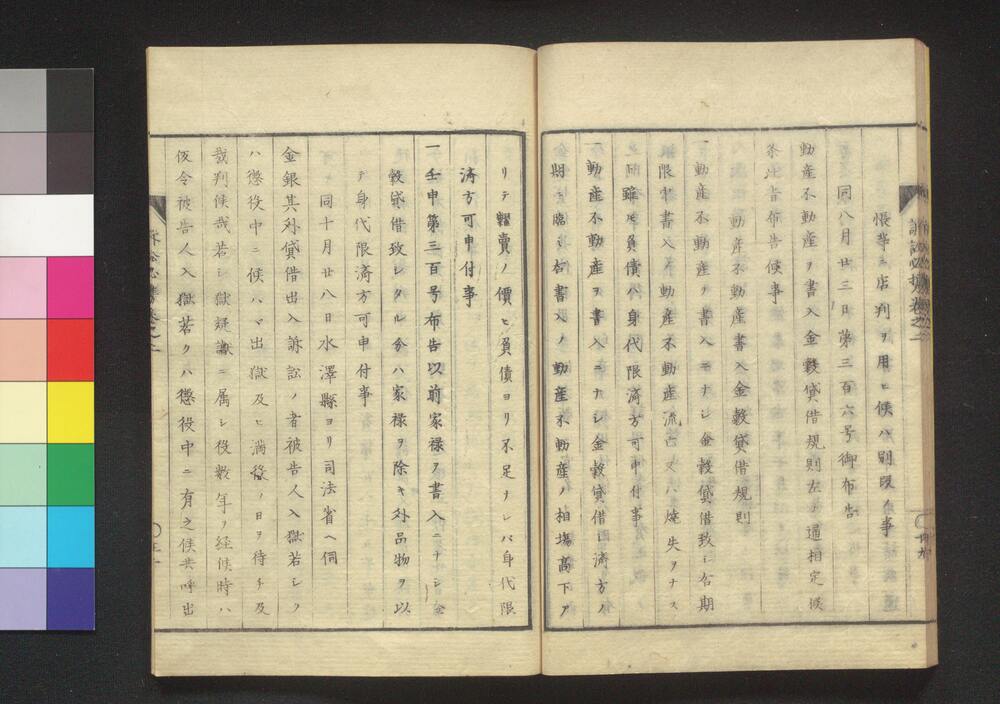 帳等ニ店判ヲ用ヒ候ハ別段ノ事
同八月廿三日第三百六号御布告
動産不動産ヲ書入金穀貸借規則左ノ通相定候
条此旨布告候事
動産不動産書入金穀貸借規則
一動産不動産ヲ書入ニナシ金穀貸借致シ若期
限ニ書入ノ動産不動産流亡又ハ焼失ヲナス
ト雖モ負債ハ身代限済方可申付事
一動産不動産ヲ書入ニナシ金穀貸借シ済方ノ
期ニ臨ミ右書入ノ動産不動産ノ相場高下ア
リテ糶賣ノ價ヒ負債ヨリ不足ナレバ身代限
済方可申付事
一壬申第三百号布告以前家禄ヲ書入ニナシ金
穀貸借致シタル分ハ家禄ヲ除キ外品物ヲ以
テ身代限済方可申付事
同十月廿八日水澤縣ヨリ司法省ヘ伺
金銀其外貸借出入訴訟ノ者被告人入獄若シク
ハ懲役中ニ候ハヾ出獄及ヒ満役ノ日ヲ待チ及
裁判候哉若シ獄疑讞ニ属シ役数年ノ経候時ハ
仮令被告人入獄若クハ懲役中ニ有之候共呼出